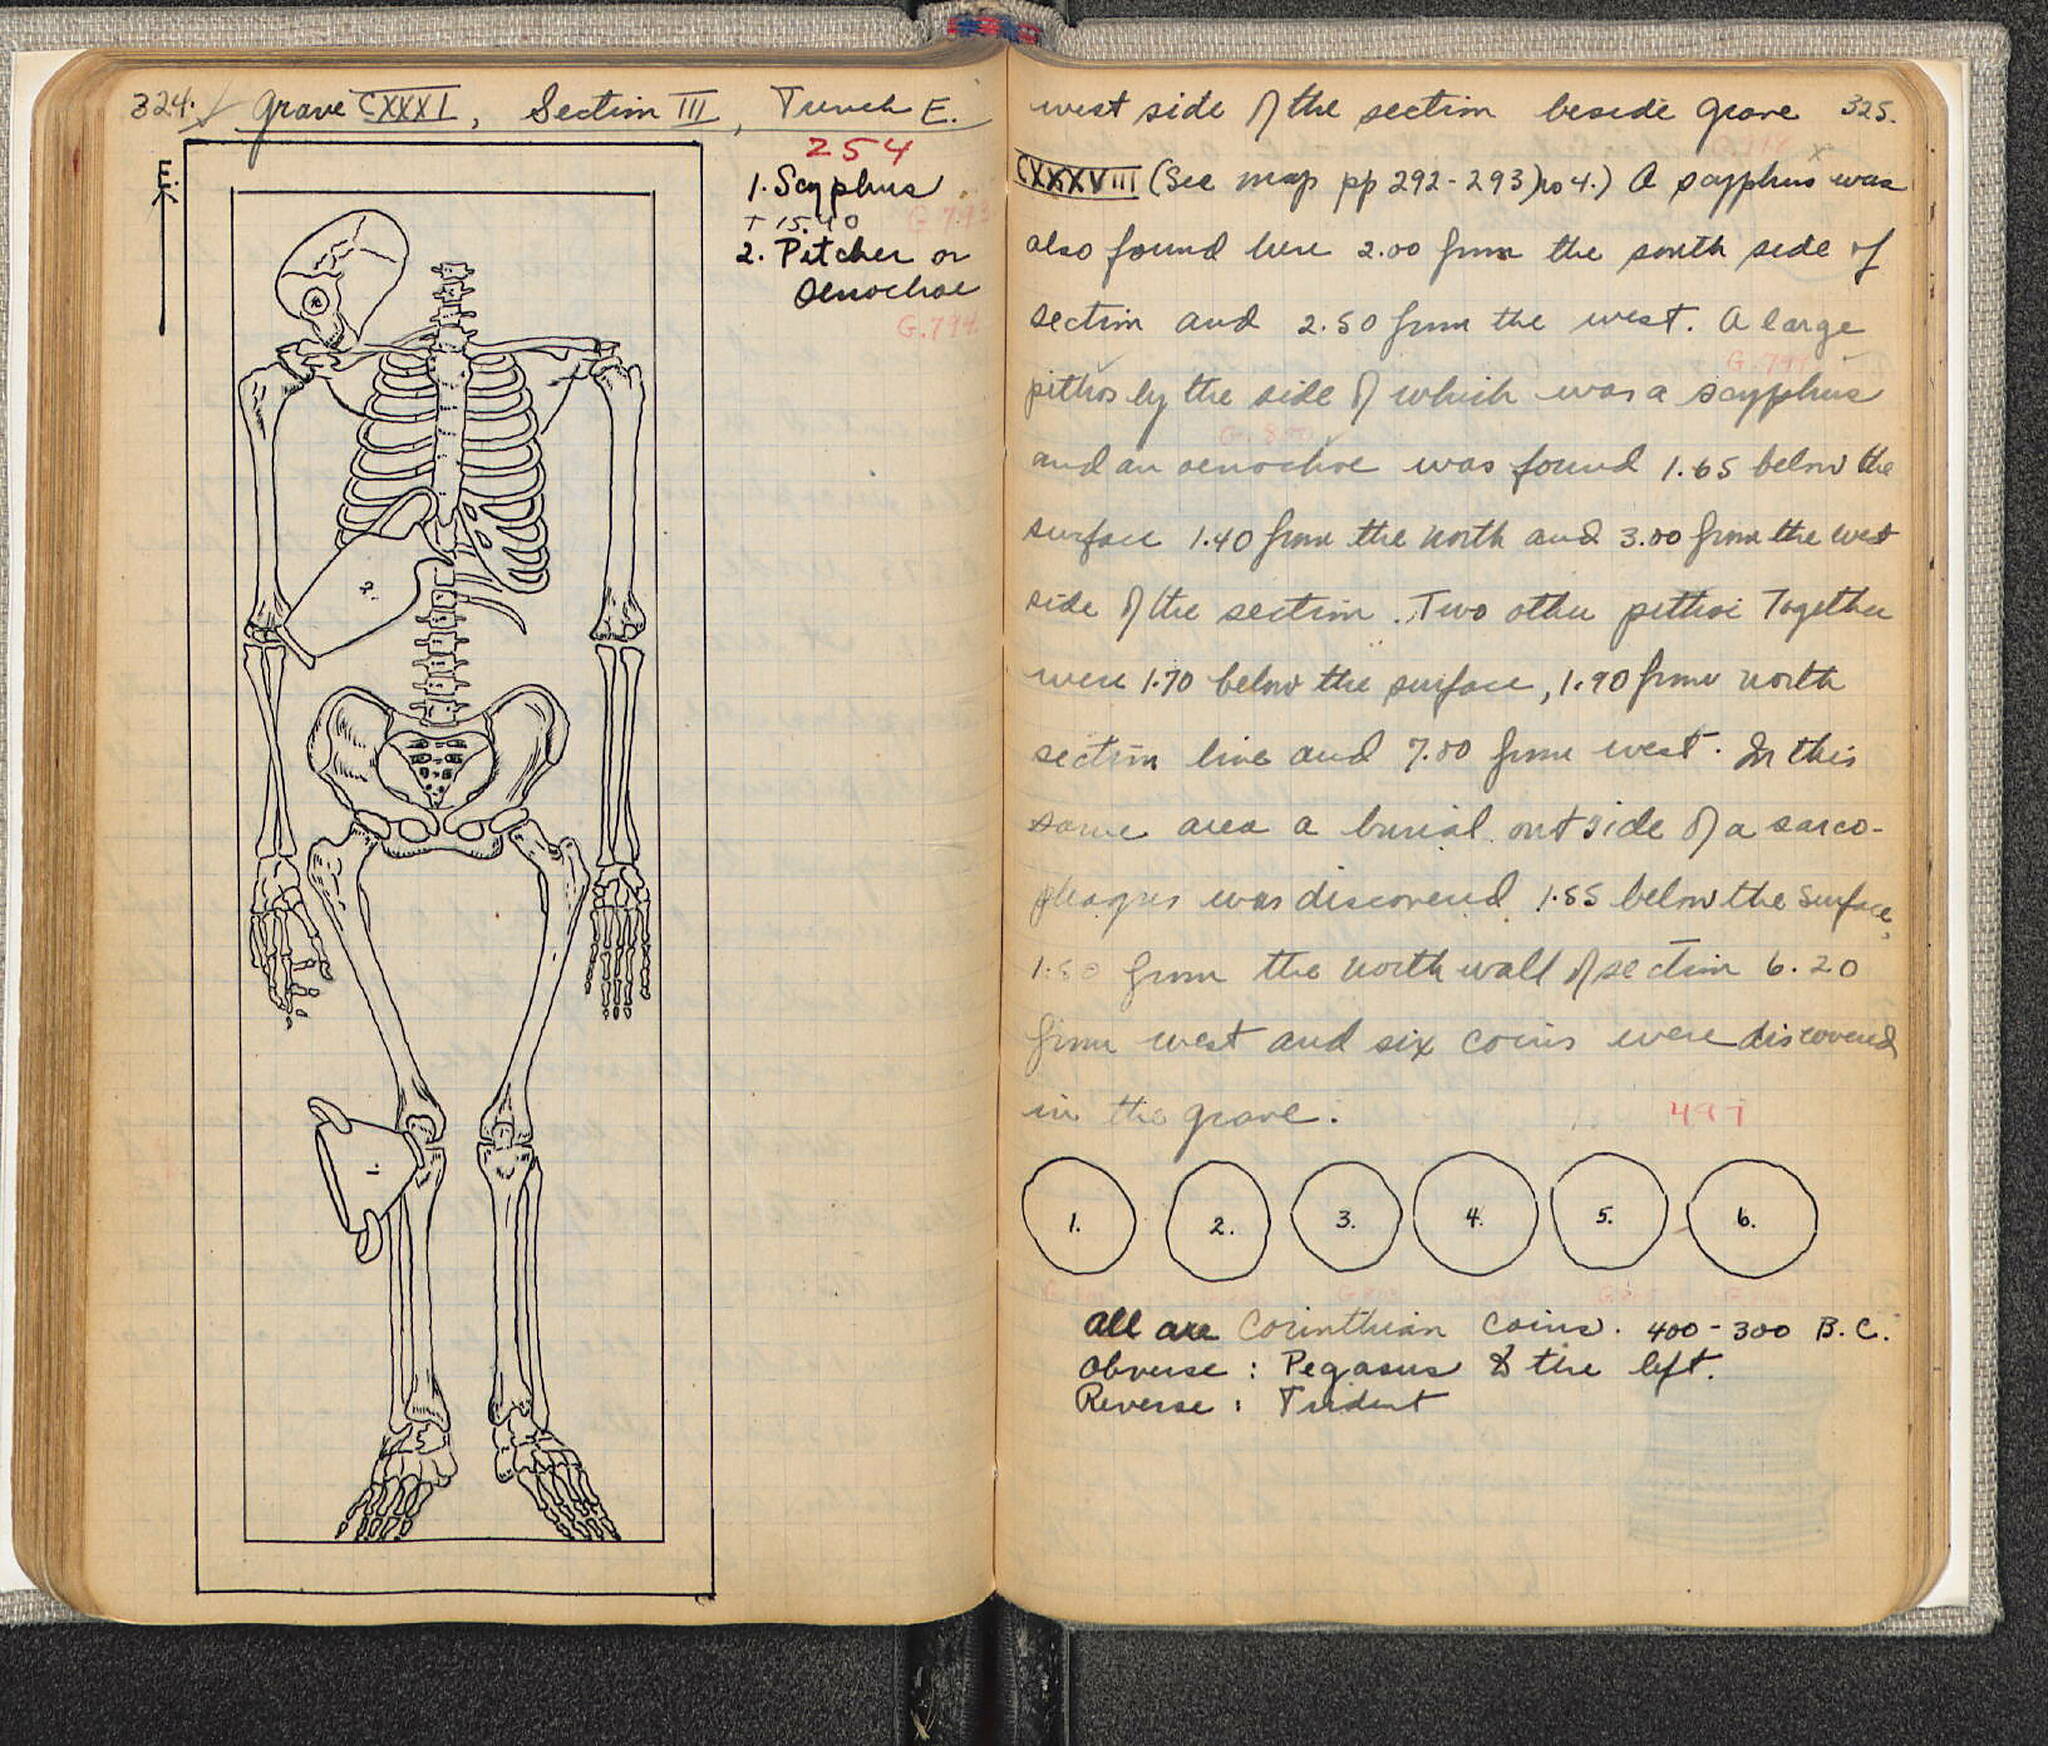 324. Grave CXXXI, Section III, Trench E.
254
E.
1. Scyphus
T 15.40
G. 793
2. Pitcher or
Oenochoe
G. 794.
2.
1
west side of the section beside grave 325.
CXXXVIII (See map pp 292-293) no 4.) A scyphus was
also found here 2.00 from the south side of
section and 2.50 from the west. A large
G. 799
pithos by the side of which was a scyphus
G. 800
and an oenochoe was found 1.65 below the
surface 1.40 from the north and 3.00 from the west
side of the section. Two other pithoi together
were 1.70 below the surface, 1.90 from north
section line and 7.00 from west. In this
same area a burial outside of a sarco-
phagus was discovered 1.85 below the surface,
from the north wall of section 6.20
from west and six coins were discovered
in the grave.
497
1. 2. 3. 4. 5. 6.
All are Corinthian Coins. 400-300 B.C.
Obverse: Pegasus to the left.
Reverse: Trident